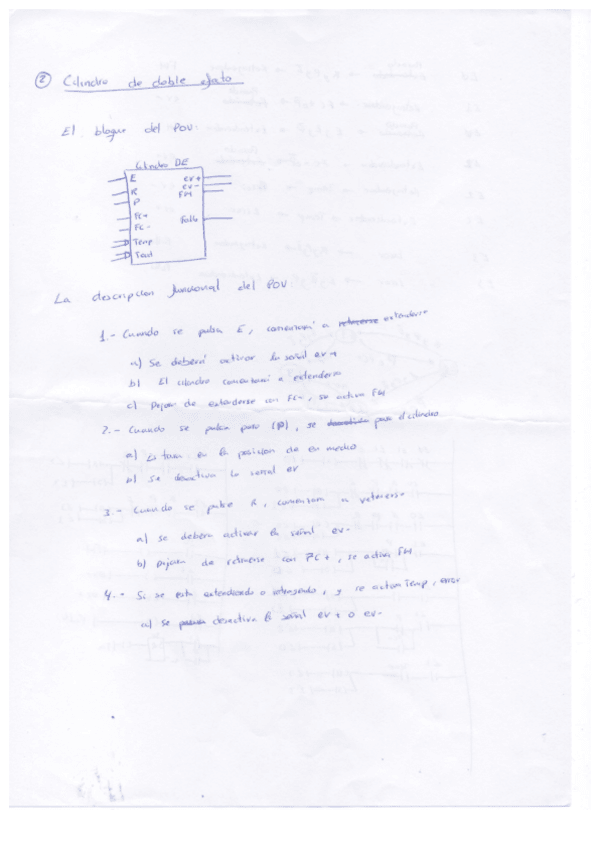 ② Cilindro de doble efecto
El bloque del POU:
Cilindro DE
E ev+
R ev-
P FM
Fc+
Fc- Fallo
Temp
Tout
La descripcion funcional del POU
1.- Cuando se pulsa E, comenzará a retraerse extenderse
a) Se deberá activar la señal ev+
b) El cilindro comenzará a extenderse
c) Dejar de extenderse con Fc-, se activa FM
2.- Cuando se pulsa paro (P), se para el cilindro
a) en la posicion de en medio
b) Se desactiva la señal ev
3.- Cuando se pulse R, comenzara a retraerse
a) se debera activar la señal ev-
b) Dejara de retraerse con FC+, se activa FM
4.- Si se esta extendiendo o retrayendo, y se activa Temp, error
a) Se desactiva la señal ev+ o ev-